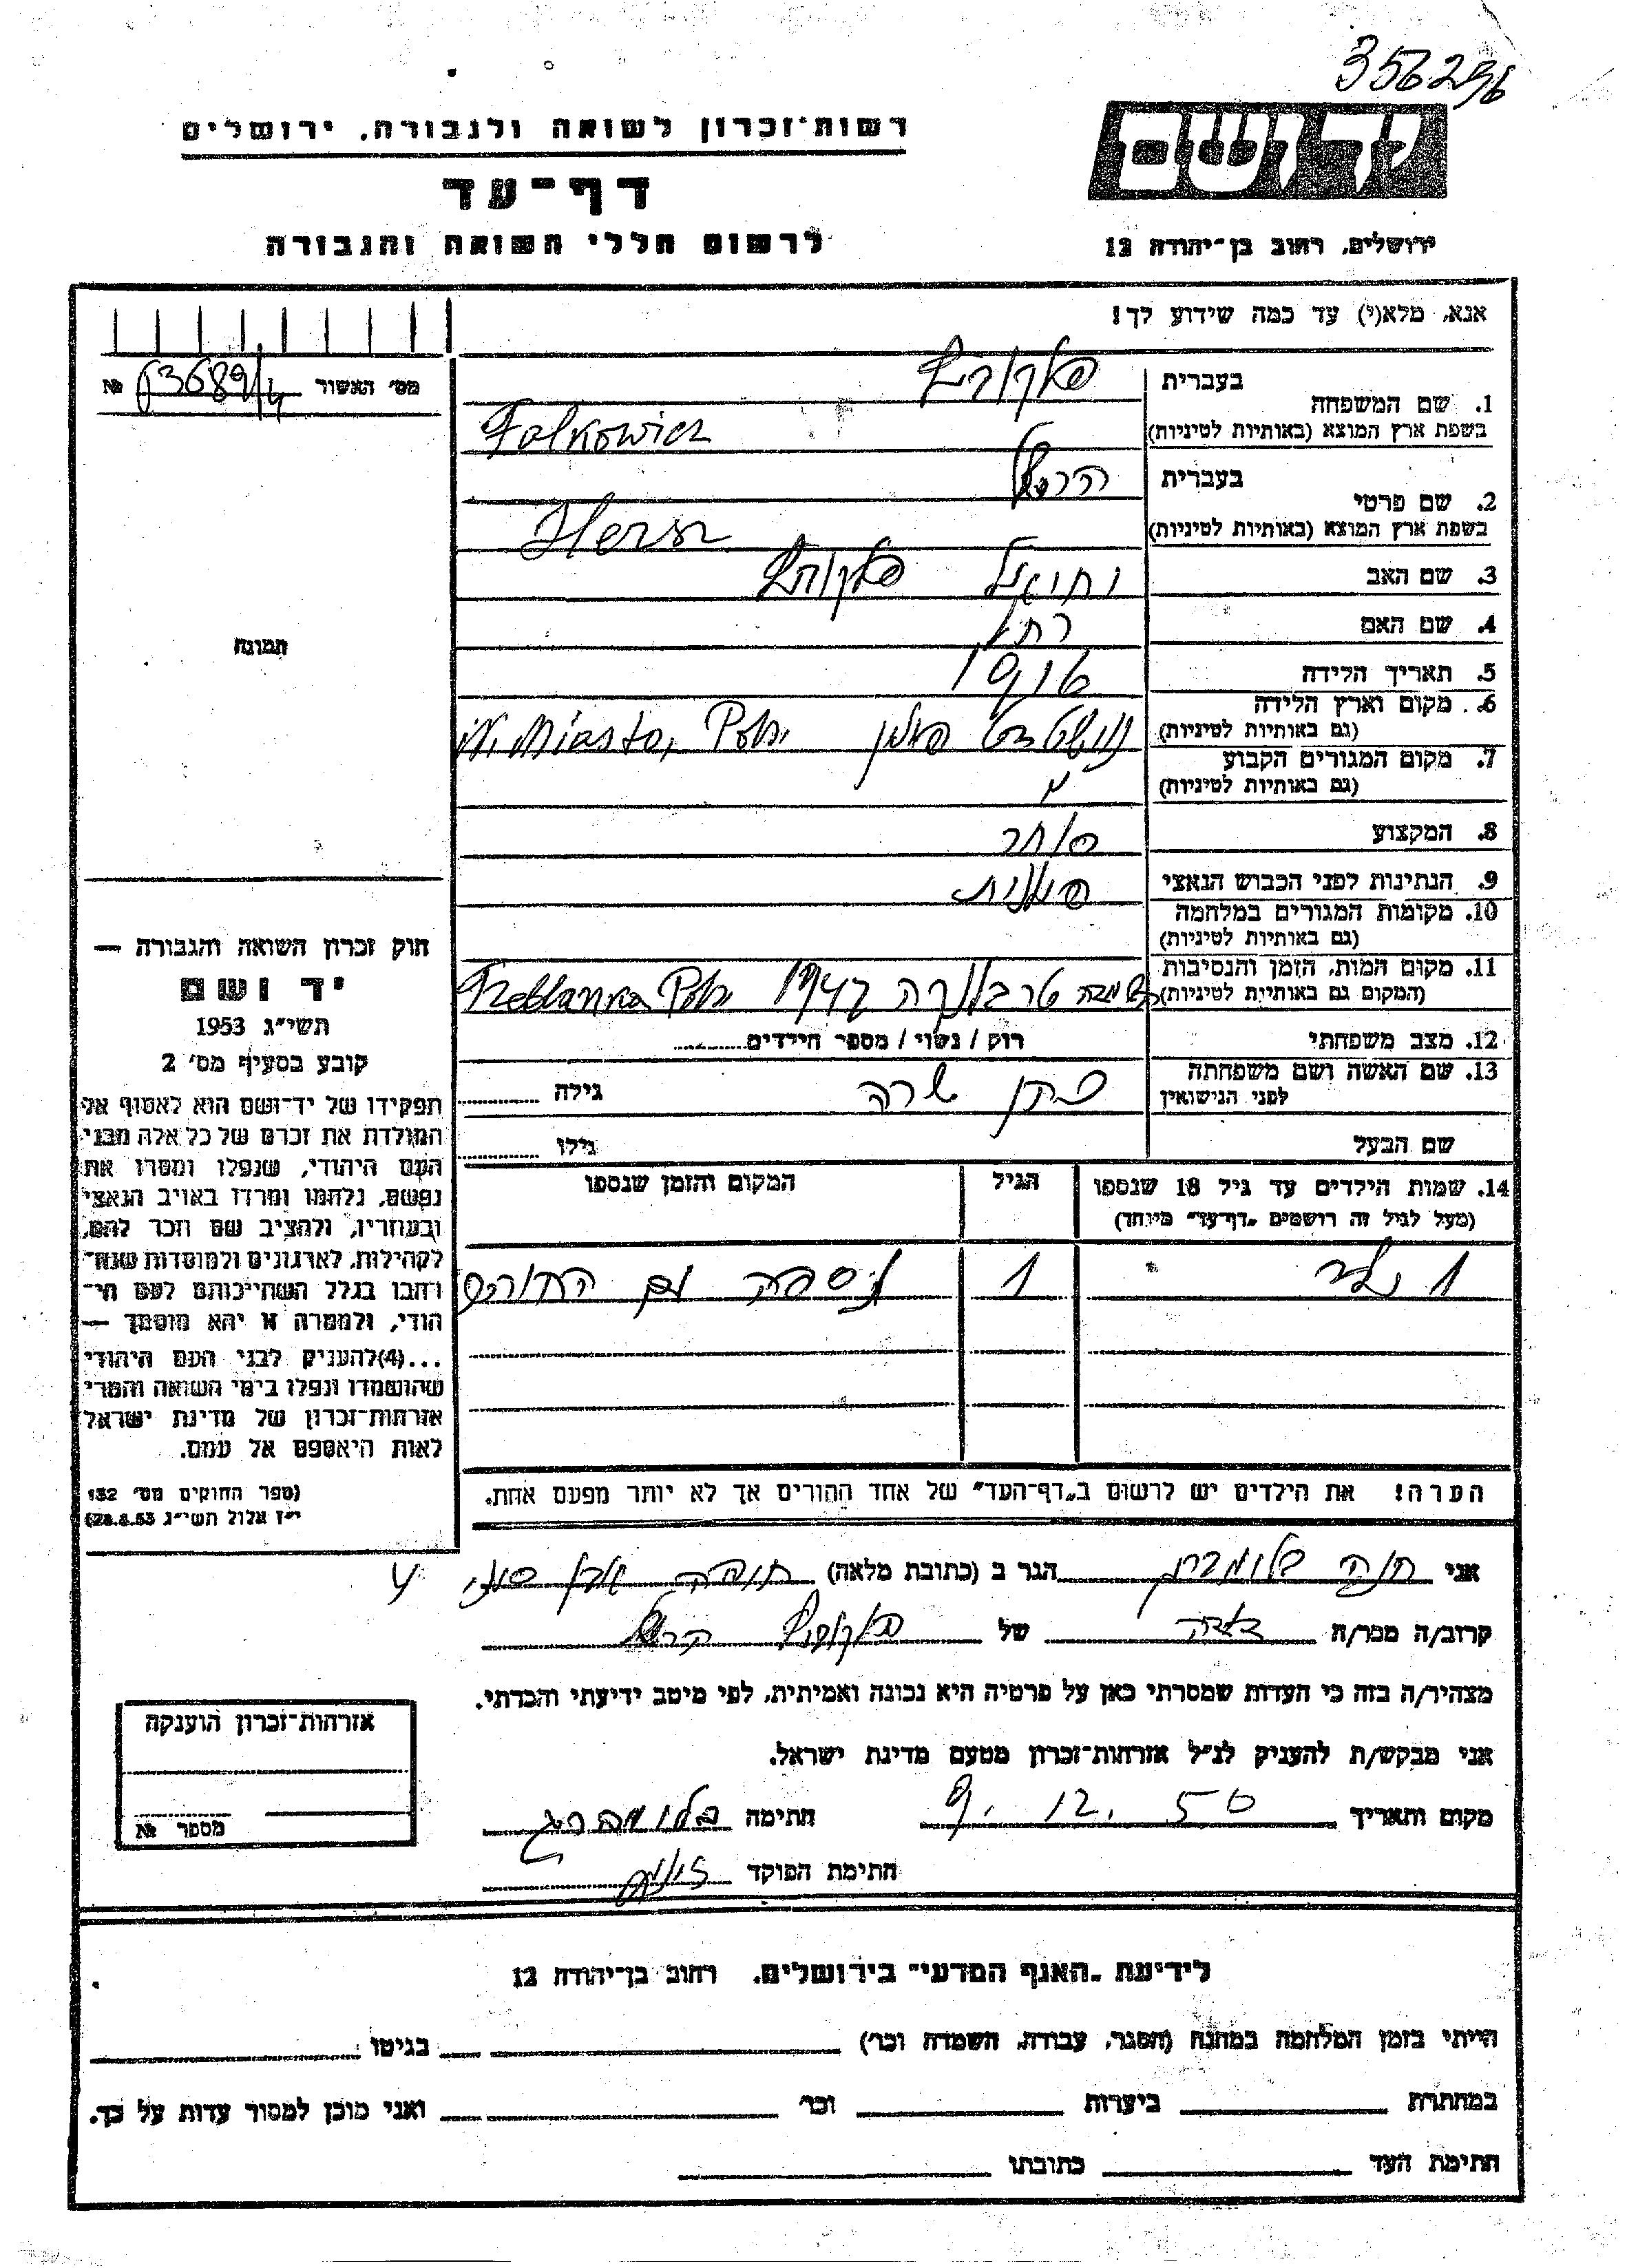 356296
רשות־זכרון לשואה ולגבורה, ירושלים
יד ושם
דף־עד
לרשום חללי השואה והגבורה
ירושלים, רחוב בן־יהודה 12
אנא, מלא(י) עד כמה שידוע לך!
מס׳ האשור №
1. שם המשפחה בעברית
בשפת ארץ המוצא (באותיות לטיניות) Falkowicz
2. שם פרטי בעברית הרשל
בשפת ארץ המוצא (באותיות לטיניות) Hersz
3. שם האב
4. שם האם רחל
5. תאריך הלידה
6. מקום וארץ הלידה פולין N. Miasto, Pol.
(גם באותיות לטיניות)
7. מקום המגורים הקבוע
(גם באותיות לטיניות)
8. המקצוע סוחר
9. הנתינות לפני הכבוש הנאצי פולנית
10. מקומות המגורים במלחמה
(גם באותיות לטיניות)
11. מקום המות, הזמן והנסיבות טרבלנקה 1942 Treblanka Pol.
(המקום גם באותיות לטיניות)
12. מצב משפחתי רוק / נשוי / מספר הילדים
13. שם האשה ושם משפחתה שרה גילה
לפני הנישואין
שם הבעל גילו
תמונה
חוק זכרון השואה והגבורה —
יד ושם
תשי״ג 1953
קובע בסעיף מס׳ 2
תפקידו של יד־ושם הוא לאסוף אל
המולדת את זכרם של כל אלה מבני
העם היהודי, שנפלו ומסרו את
נפשם, נלחמו ומרדו באויב הנאצי
ובעוזריו, ולהציב שם וזכר להם,
לקהילות, לארגונים ולמוסדות שנח־
רבו בגלל השתייכותם לעם הי־
הודי, ולמטרה זו יהא מוסמך —
...(4)להעניק לבני העם היהודי
שהושמדו ונפלו בימי השואה והמרי
אזרחות־זכרון של מדינת ישראל
לאות היאספם אל עמם.
(ספר החוקים מס׳ 132
י״ז אלול תשי״ג 28.8.53)
14. שמות הילדים עד גיל 18 שנספו הגיל המקום והזמן שנספו
(מעל לגיל זה רושמים „דף־עד״ מיוחד)
1 ילד 1 נספה עם ההורים
הערה! את הילדים יש לרשום ב„דף־העד״ של אחד ההורים אך לא יותר מפעם אחת.
אני חנה הגר ב (כתובת מלאה)
קרוב/ה מכר/ה של
מצהיר/ה בזה כי העדות שמסרתי כאן על פרטיה היא נכונה ואמיתית, לפי מיטב ידיעתי והכרתי.
אני מבקש/ת להעניק לנ״ל אזרחות־זכרון מטעם מדינת ישראל.
מקום ותאריך 9. 12. 56 חתימה בלומברג
חתימת הפוקד
אזרחות־זכרון הוענקה
מספר №
לידיעת „האגף המדעי״ בירושלים, רחוב בן־יהודה 12
הייתי בזמן המלחמה במחנה (הסגר, עבודה, השמדה וכו׳) בגיטו
במחתרת ביערות וכו׳ ואני מוכן למסור עדות על כך.
חתימת העד כתובתו